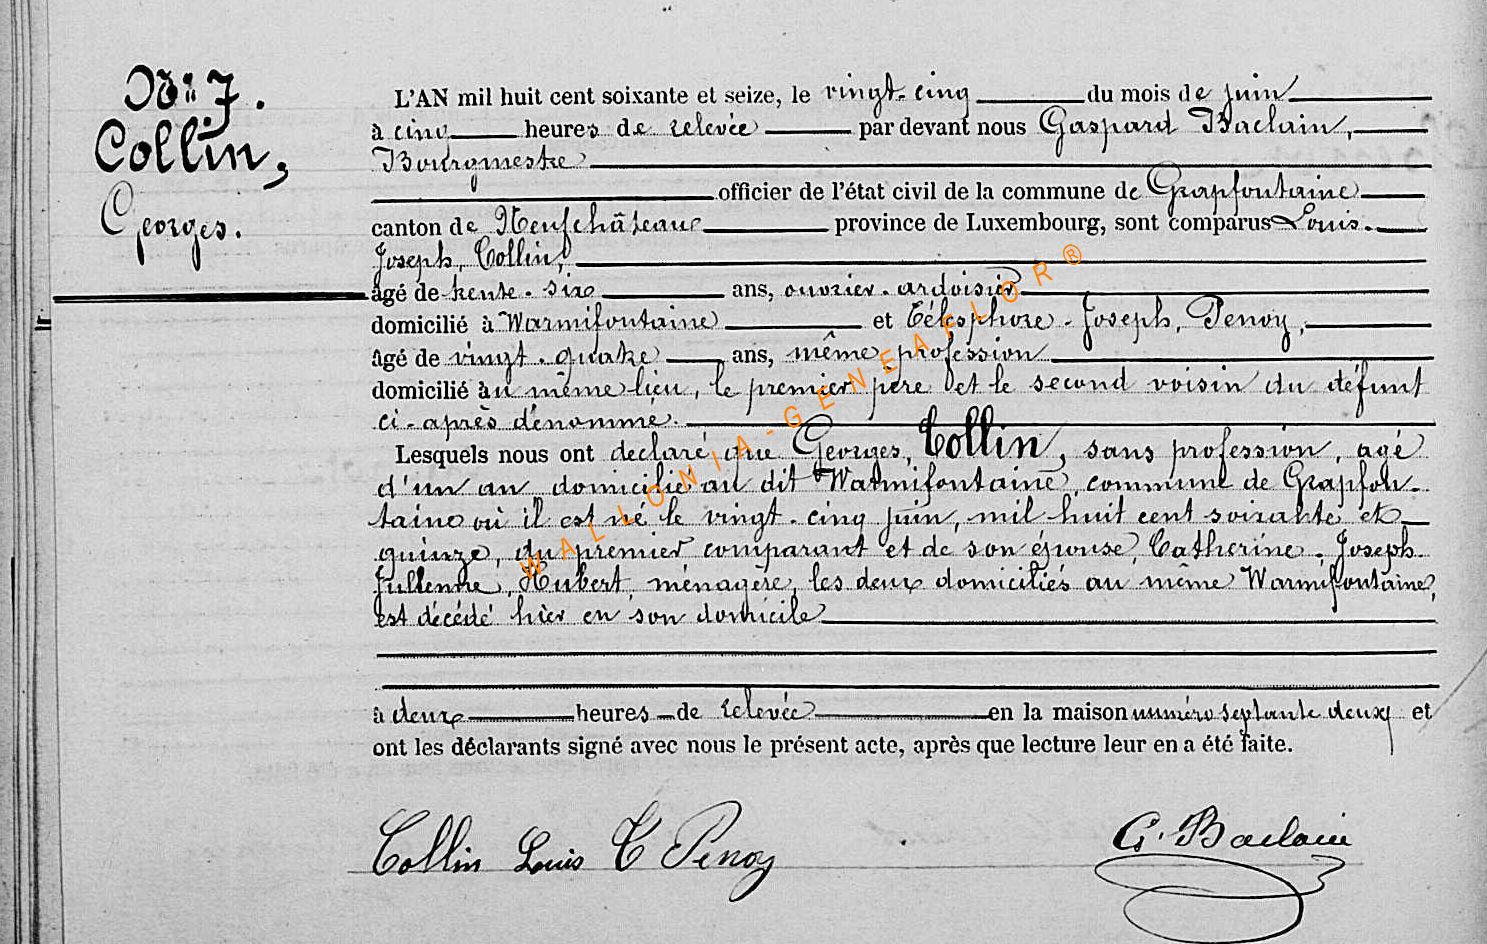 N° 7.
Collin,
Georges.
L'AN mil huit cent soixante et seize, le vingt-cinq du mois de juin
à cinq heures de relevée par devant nous Gaspard Baclain,
Bourgmestre
officier de l'état civil de la commune de Grapfontaine
canton de Neufchâteau province de Luxembourg, sont comparus Louis-
Joseph, Collin,
âgé de trente-six ans, ouvrier-ardoisier
domicilié à Warmifontaine et Télesphore-Joseph, Penoy,
âgé de vingt-quatre ans, même profession
domicilié au même lieu, le premier père et le second voisin du défunt
ci-après dénommé.
Lesquels nous ont declaré que Georges, Collin, sans profession, agé
d'un an domicilié au dit Warmifontaine, commune de Grapfon-
taine où il est né le vingt-cinq juin, mil huit cent soixante et
quinze, du premier comparant et de son épouse, Catherine-Joseph-
Julienne, Hubert, ménagère, les deux domiciliés au même Warmifontaine,
est décédé hier en son domicile
à deux heures de relevée en la maison numéro septante deux et
ont les déclarants signé avec nous le présent acte, après que lecture leur en a été faite.
Collin Louis T Penoy G. Baclain
WALLONIA-GENEAFLOR®